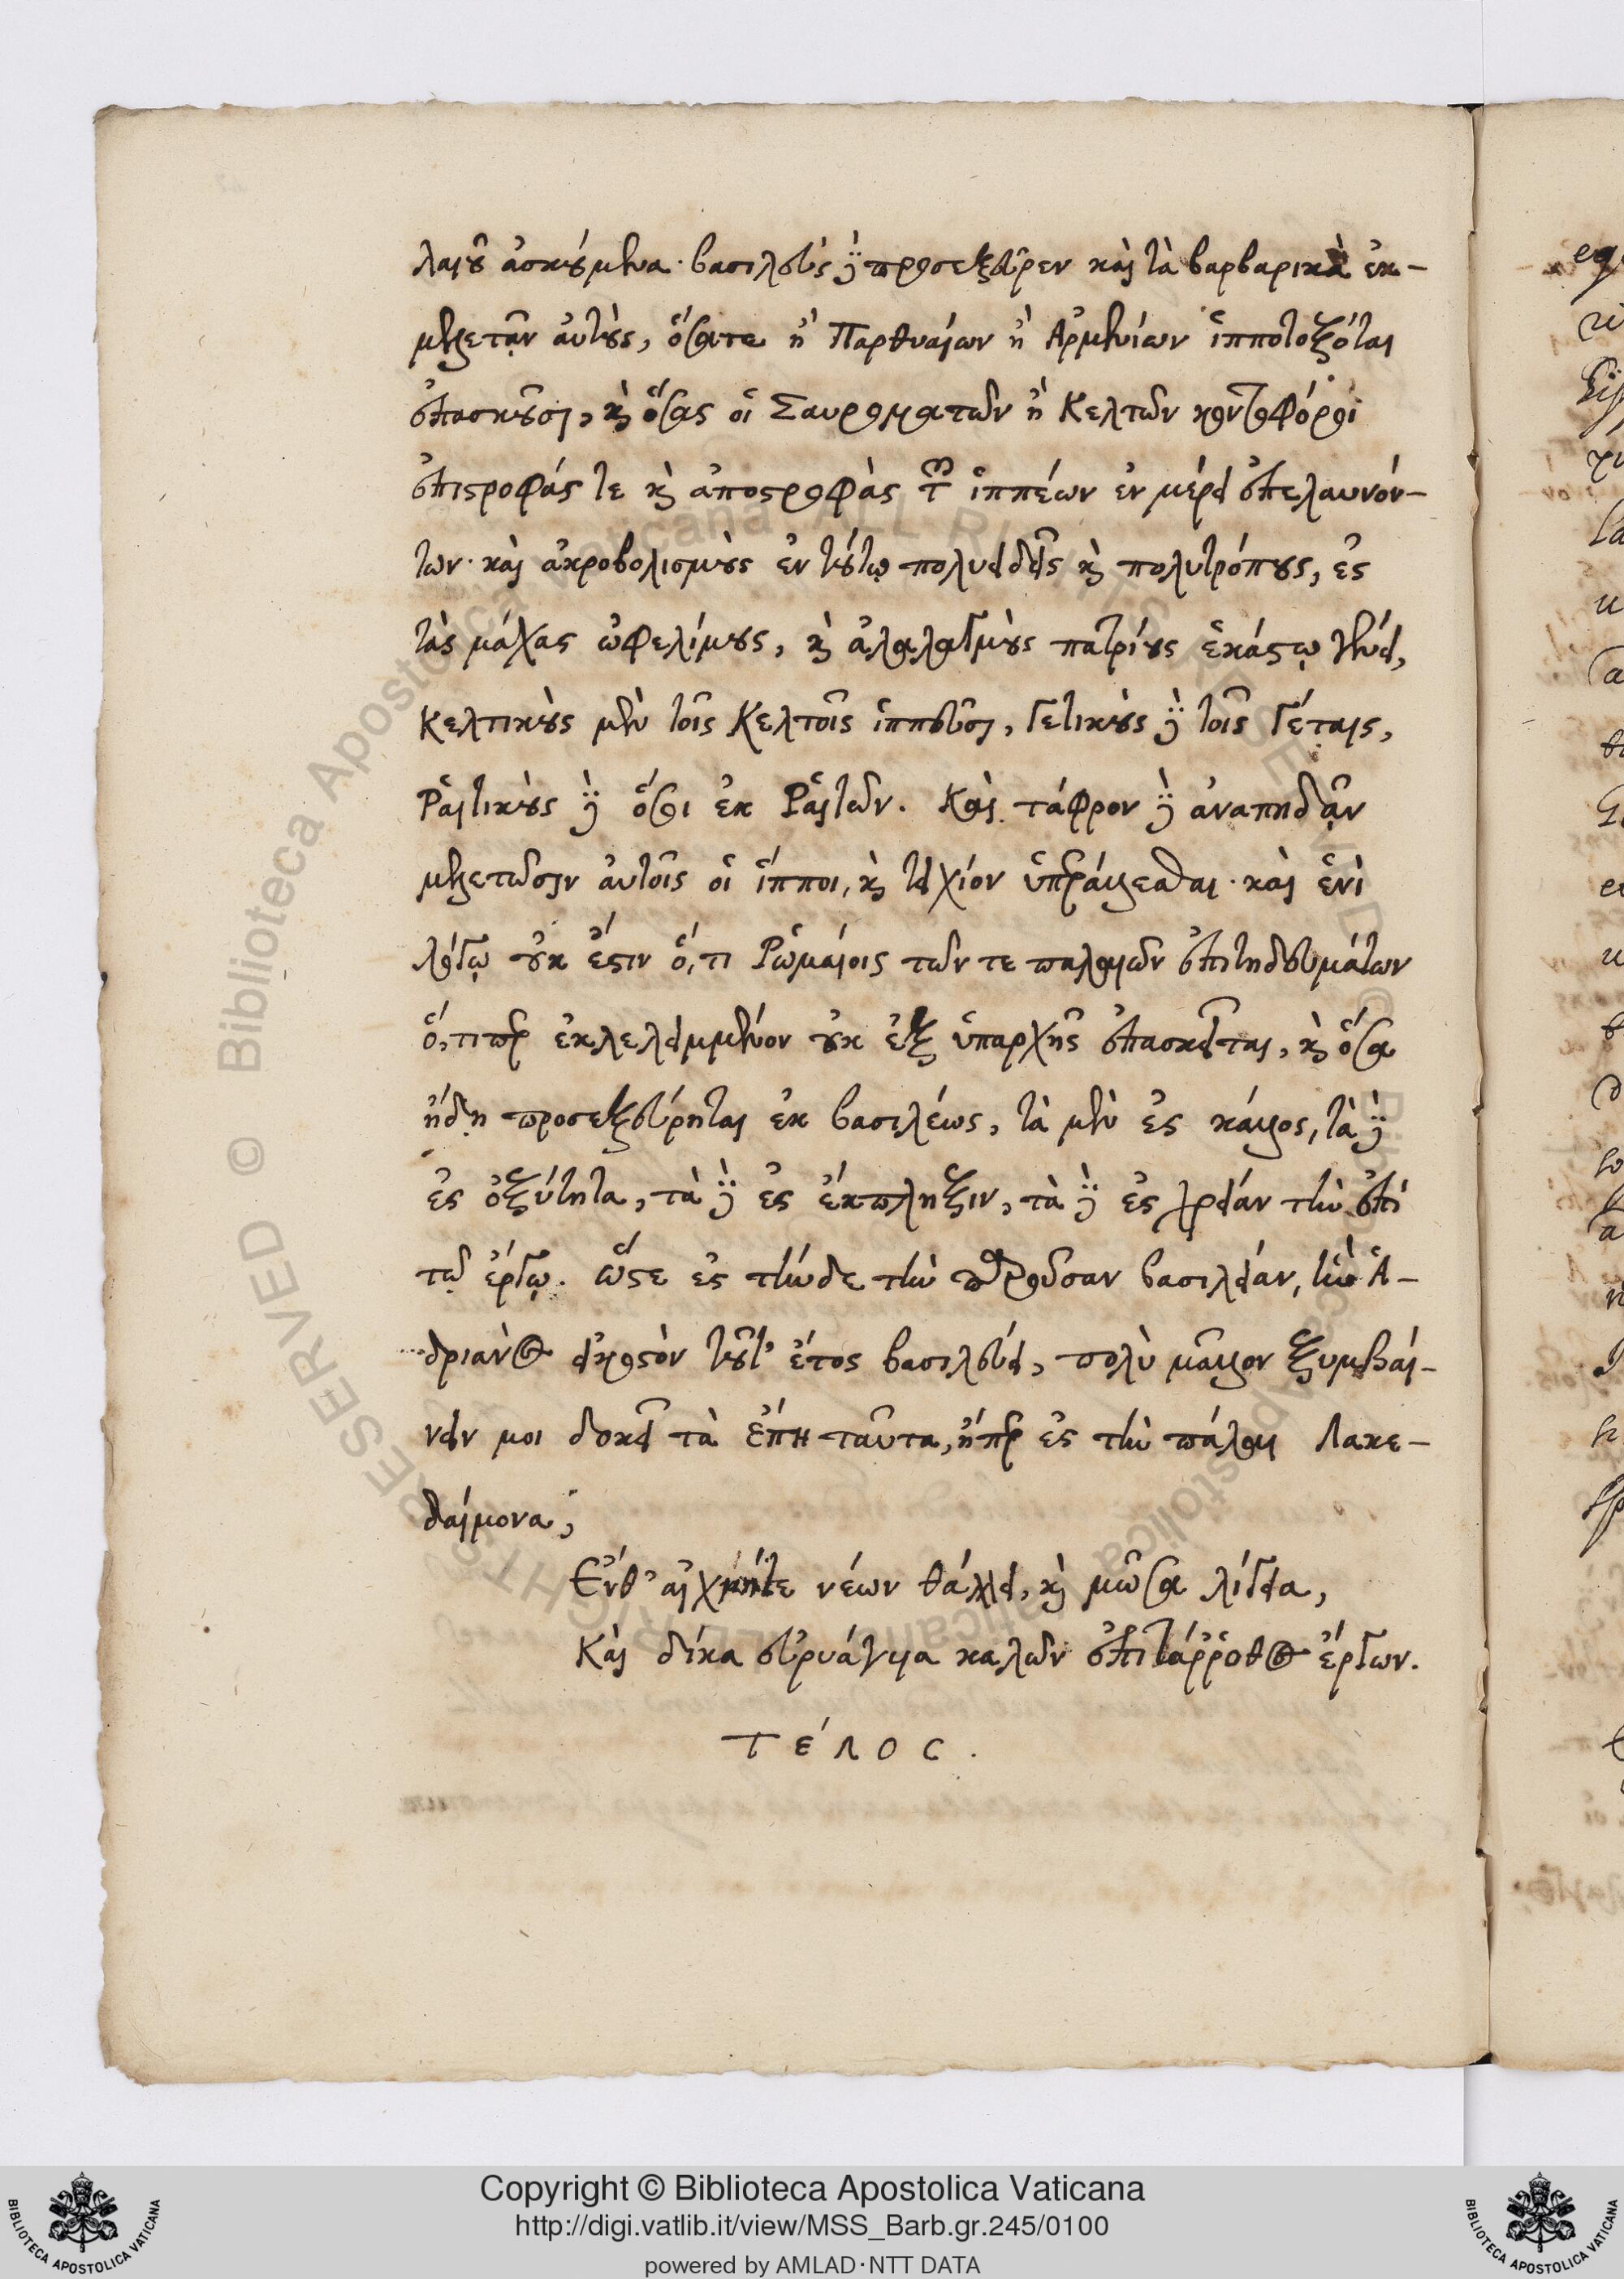 λαιοῦ ἀσκούμενα· βασιλεὺς δὲ προσεξεῦρεν καὶ τὰ βαρβαρικὰ ἐκ-
μελετᾷν αὐτοὺς, ὅσατε ἢ Παρθυαίων ἢ Ἀρμενίων ἱπποτοξόται
ἐπασκοῦσι, καὶ ὅσας οἱ Σαυροματῶν ἢ Κελτῶν κοντοφόροι
ἐπιστροφάς τε καὶ ἀποστροφὰς τῶν ἱππέων ἐν μέρει ἐπελαυνόν-
των· καὶ ἀκροβολισμοὺς ἐν τούτῳ πολυειδεῖς καὶ πολυτρόπους, ἐς
τὰς μάχας ὠφελίμους, καὶ ἀλαλαγμοὺς πατρίους ἑκάστῳ γένει,
Κελτικοὺς μὲν τοῖς Κελτοῖς ἱππεῦσι, Γετικοὺς δὲ τοῖς Γέταις,
Ῥαιτικοὺς δὲ ὅσοι ἐκ Ῥαιτῶν. Καὶ τάφρον δὲ ἀναπηδᾷν
μελετῶσιν αὐτοῖς οἱ ἵπποι, καὶ τειχίον ὑπεράλλεσθαι· καὶ ἑνὶ
λόγῳ οὐκ ἔστιν ὅ,τι Ῥωμαίοις τῶν τε παλαιῶν ἐπιτηδευμάτων
ὅ,τιπερ ἐκλελειμμένον οὐκ ἐξ ὑπαρχῆς ἐπασκεῖται, καὶ ὅσα
ἤδη προσεξεύρηται ἐκ βασιλέως, τὰ μὲν ἐς κάλλος, τὰ δὲ
ἐς ὀξύτητα, τὰ δὲ ἐς ἔκπληξιν, τὰ δὲ ἐς χρείαν τὴν ἐπὶ
τῷ ἔργῳ. ὥστε ἐς τήνδε τὴν παροῦσαν βασιλείαν, ἣν Ἀ-
δριανὸς εἰκοστὸν τοῦτ' ἔτος βασιλεύει, πολὺ μᾶλλον ξυμβαί-
νειν μοι δοκεῖ τὰ ἔπη ταῦτα, ἤπερ ἐς τὴν πάλαι Λακε-
δαίμονα;
Ἔνθ' αἰχμήτε νέων θάλλει, καὶ μῶσα λίγεια,
Καὶ δίκα εὐρυάγυια καλῶν ἐπιτάῤῥοθος ἔργων.
ΤέΛΟC.
Copyright © Biblioteca Apostolica Vaticana
http://digi.vatlib.it/view/MSS_Barb.gr.245/0100
powered by AMLAD·NTT DATA